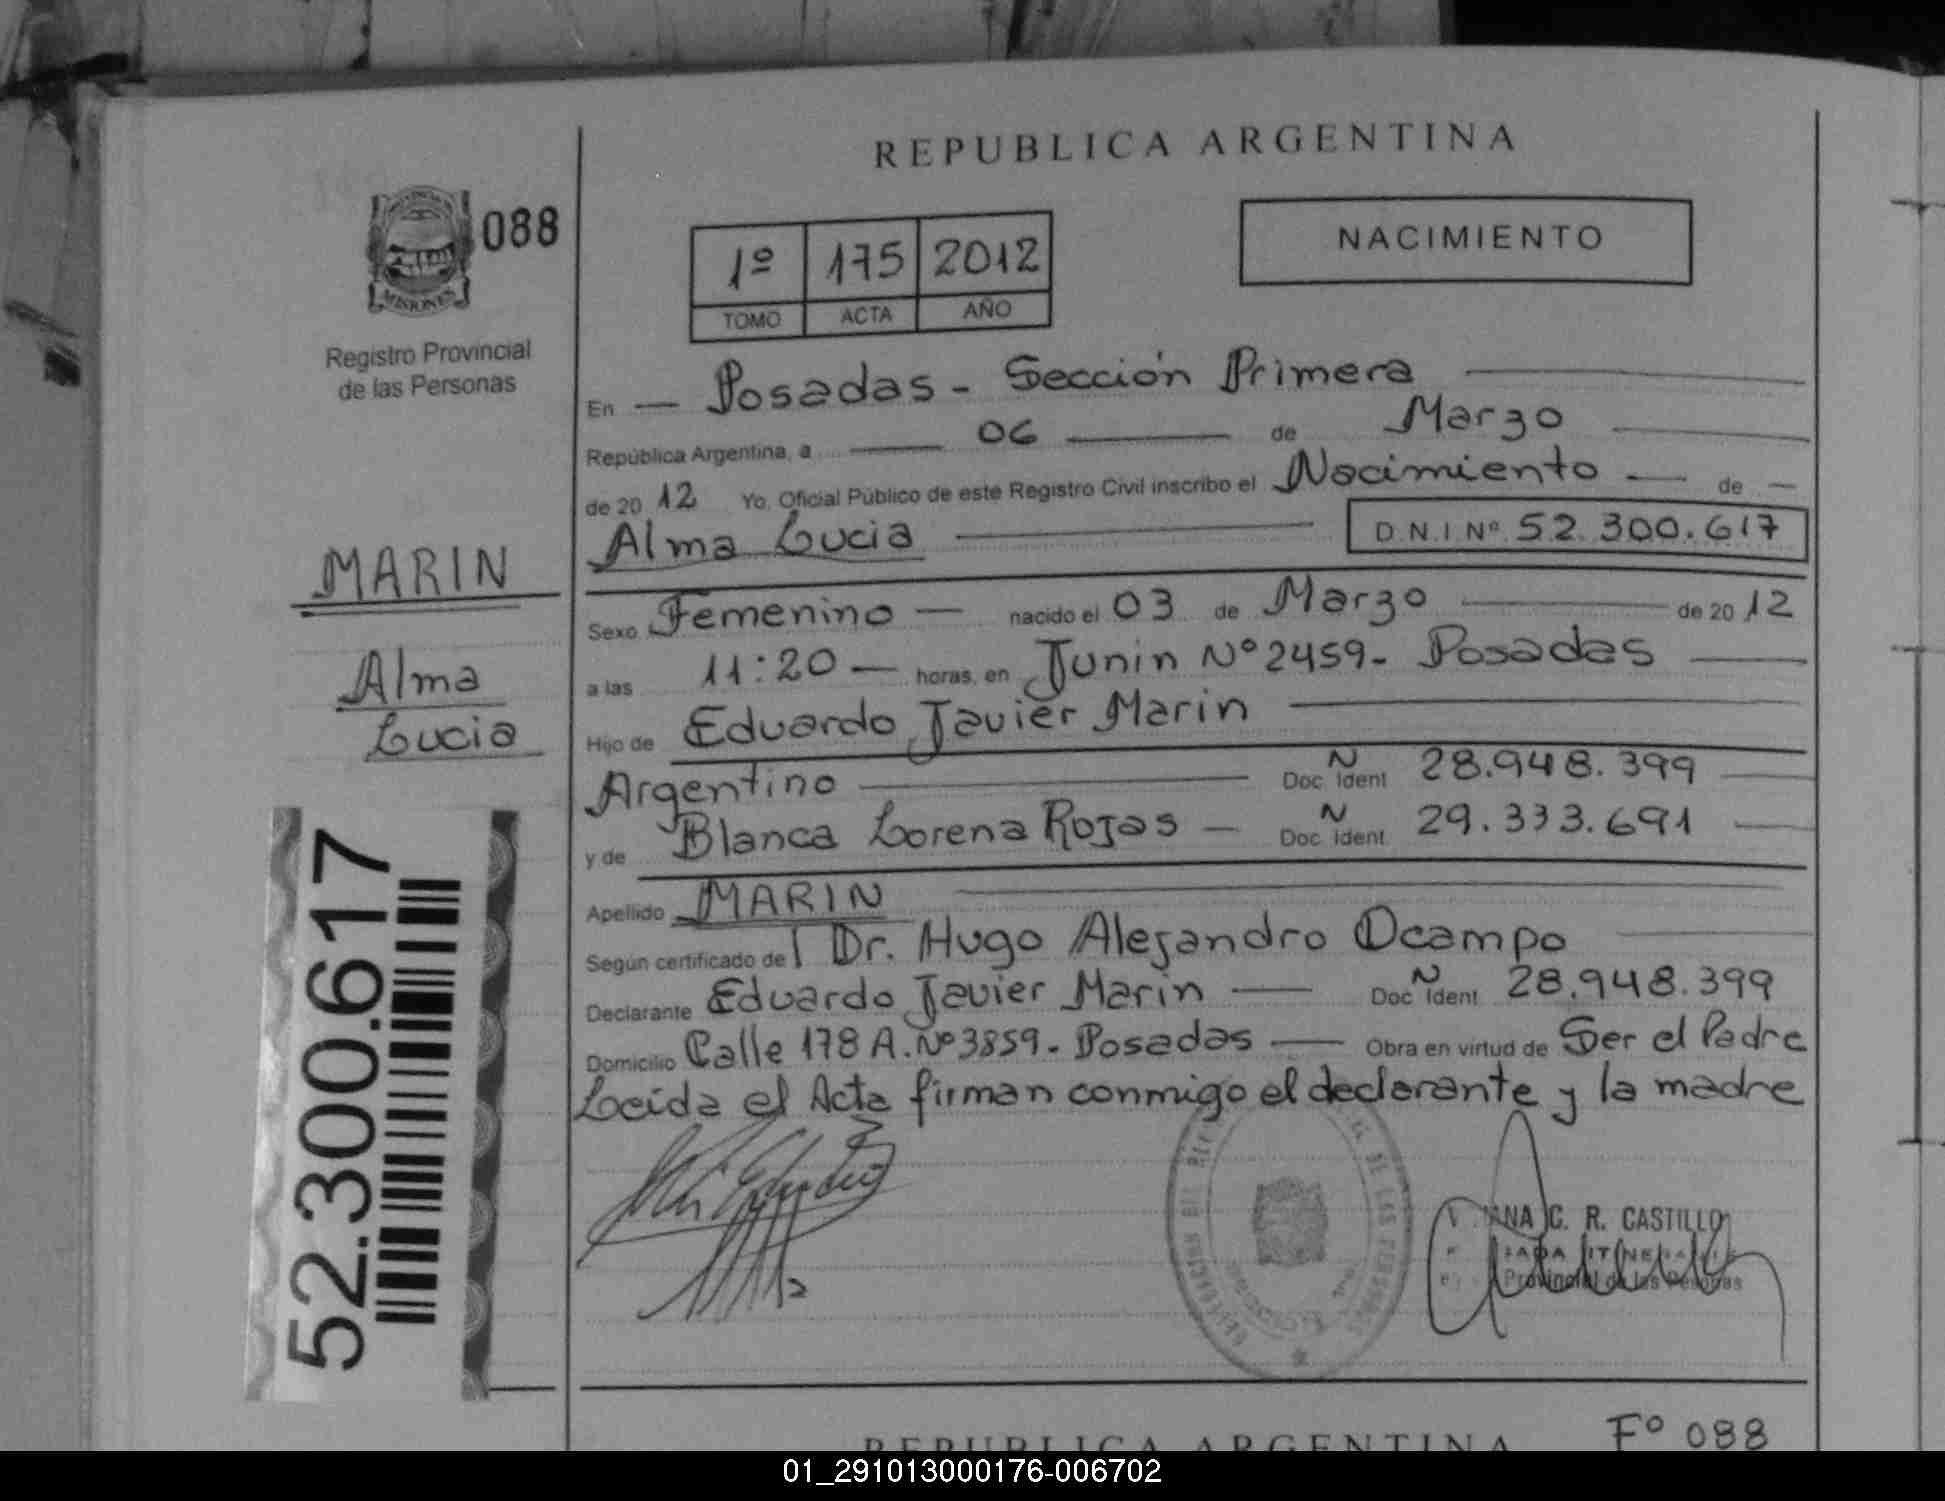 REPUBLICA ARGENTINA
MISIONES
088
Registro Provincial
de las Personas
1º 175 2012
TOMO ACTA AÑO
NACIMIENTO
En Posadas - Sección Primera
República Argentina, a 06 de Marzo
de 20 12 Yo, Oficial Público de este Registro Civil inscribo el Nacimiento de
Alma Lucia D.N.I Nº 52.300.617
MARIN
Alma
Lucia
52.300.617
Sexo Femenino nacido el 03 de Marzo de 20 12
a las 11:20 horas, en Junin Nº 2459- Posadas
Hijo de Eduardo Javier Marin
Argentino Doc. Ident N 28.948.399
y de Blanca Lorena Rojas Doc. Ident. N 29.333.691
Apellido MARIN
Según certificado de l Dr. Hugo Alejandro Ocampo
Declarante Eduardo Javier Marin Doc. Ident N 28.948.399
Domicilio Calle 178 A. Nº 3859- Posadas Obra en virtud de Ser el Padre
Leida el Acta firman conmigo el declarante y la madre
C. R. CASTILLO
Provincial de las Personas
REPUBLICA ARGENTINA Fº 088
01_291013000176-006702